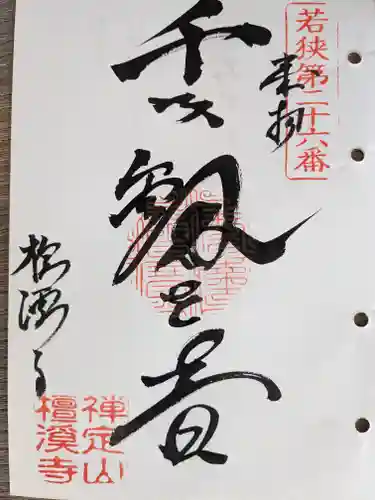 若狭第二十六番
奉拝
千手観世音
檀渓寺
禅定山
檀溪寺